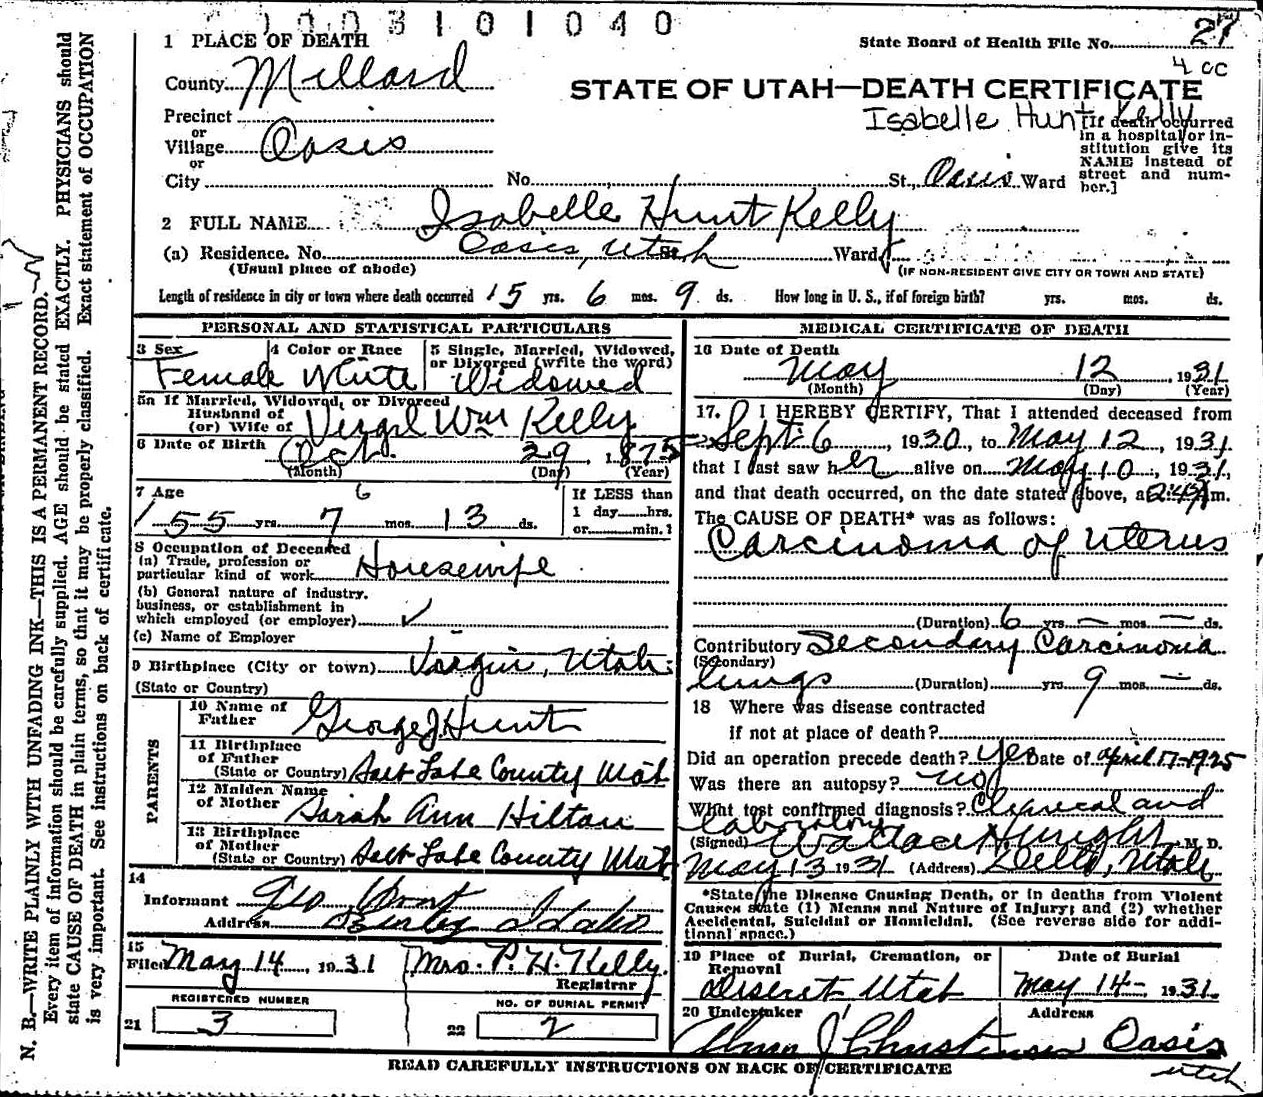 0003101040
State Board of Health File No. 27
4 cc
1 PLACE OF DEATH
County Millard
STATE OF UTAH—DEATH CERTIFICATE
Isabelle Hunt Kelly
Precinct
or
Village Oasis
or
City No. St., Oasis Ward
[If death occurred in a hospital or institution give its NAME instead of street and number.]
2 FULL NAME Isabelle Hunt Kelly
(a) Residence. No. Oasis, Utah St. Ward
(Usual place of abode)
(IF NON-RESIDENT GIVE CITY OR TOWN AND STATE)
Length of residence in city or town where death occurred 15 yrs. 6 mos. 9 ds. How long in U. S., if of foreign birth? yrs. mos. ds.
PERSONAL AND STATISTICAL PARTICULARS
3 Sex Female
4 Color or Race White
5 Single, Married, Widowed, or Divorced (write the word) Widowed
5a If Married, Widowed, or Divorced
Husband of
(or) Wife of Virgil Wm Kelly
6 Date of Birth Oct. 29, 1875
(Month) (Day) (Year)
7 Age 6
55 yrs. 7 mos. 13 ds.
If LESS than
1 day hrs.
or min.?
8 Occupation of Deceased
(a) Trade, profession or
particular kind of work Housewife
(b) General nature of industry,
business, or establishment in
which employed (or employer) ✓
(c) Name of Employer
9 Birthplace (City or town) Virgin, Utah
(State or Country)
PARENTS
10 Name of
Father George J. Hunt
11 Birthplace
of Father
(State or Country) Salt Lake County Utah
12 Maiden Name
of Mother Sarah Ann Hilton
13 Birthplace
of Mother
(State or Country) Salt Lake County Utah
14
Informant Geo Hunt
Address Burley Idaho
15
Filed May 14, 1931 Mrs. P. H. Kelly
Registrar
REGISTERED NUMBER
21 3
NO. OF BURIAL PERMIT
22 2
MEDICAL CERTIFICATE OF DEATH
16 Date of Death
May 12, 1931
(Month) (Day) (Year)
17. I HEREBY CERTIFY, That I attended deceased from
Sept 6, 1930, to May 12, 1931
that I last saw her alive on May 10, 1931,
and that death occurred, on the date stated above, at m.
The CAUSE OF DEATH* was as follows:
Carcinoma of Uterus
(Duration) 6 yrs. — mos. — ds.
Contributory Secondary Carcinoma
(Secondary)
lungs (Duration) yrs. 9 mos. — ds.
18 Where was disease contracted
if not at place of death?
Did an operation precede death? Yes Date of April 17-1925
Was there an autopsy? no
What test confirmed diagnosis? Clinical and
laboratory
(Signed) M. D.
May 13 1931 (Address) Delta, Utah
*State the Disease Causing Death, or in deaths from Violent
Causes state (1) Means and Nature of Injury; and (2) whether
Accidental, Suicidal or Homicidal. (See reverse side for addi-
tional space.)
19 Place of Burial, Cremation, or
Removal
Deseret Utah
Date of Burial
May 14- 1931.
20 Undertaker
Christensen
Address
Oasis
Utah
READ CAREFULLY INSTRUCTIONS ON BACK OF CERTIFICATE
N. B.—WRITE PLAINLY WITH UNFADING INK—THIS IS A PERMANENT RECORD.
Every item of information should be carefully supplied. AGE should be stated EXACTLY. PHYSICIANS should
state CAUSE OF DEATH in plain terms, so that it may be properly classified. Exact statement of OCCUPATION
is very important. See instructions on back of certificate.